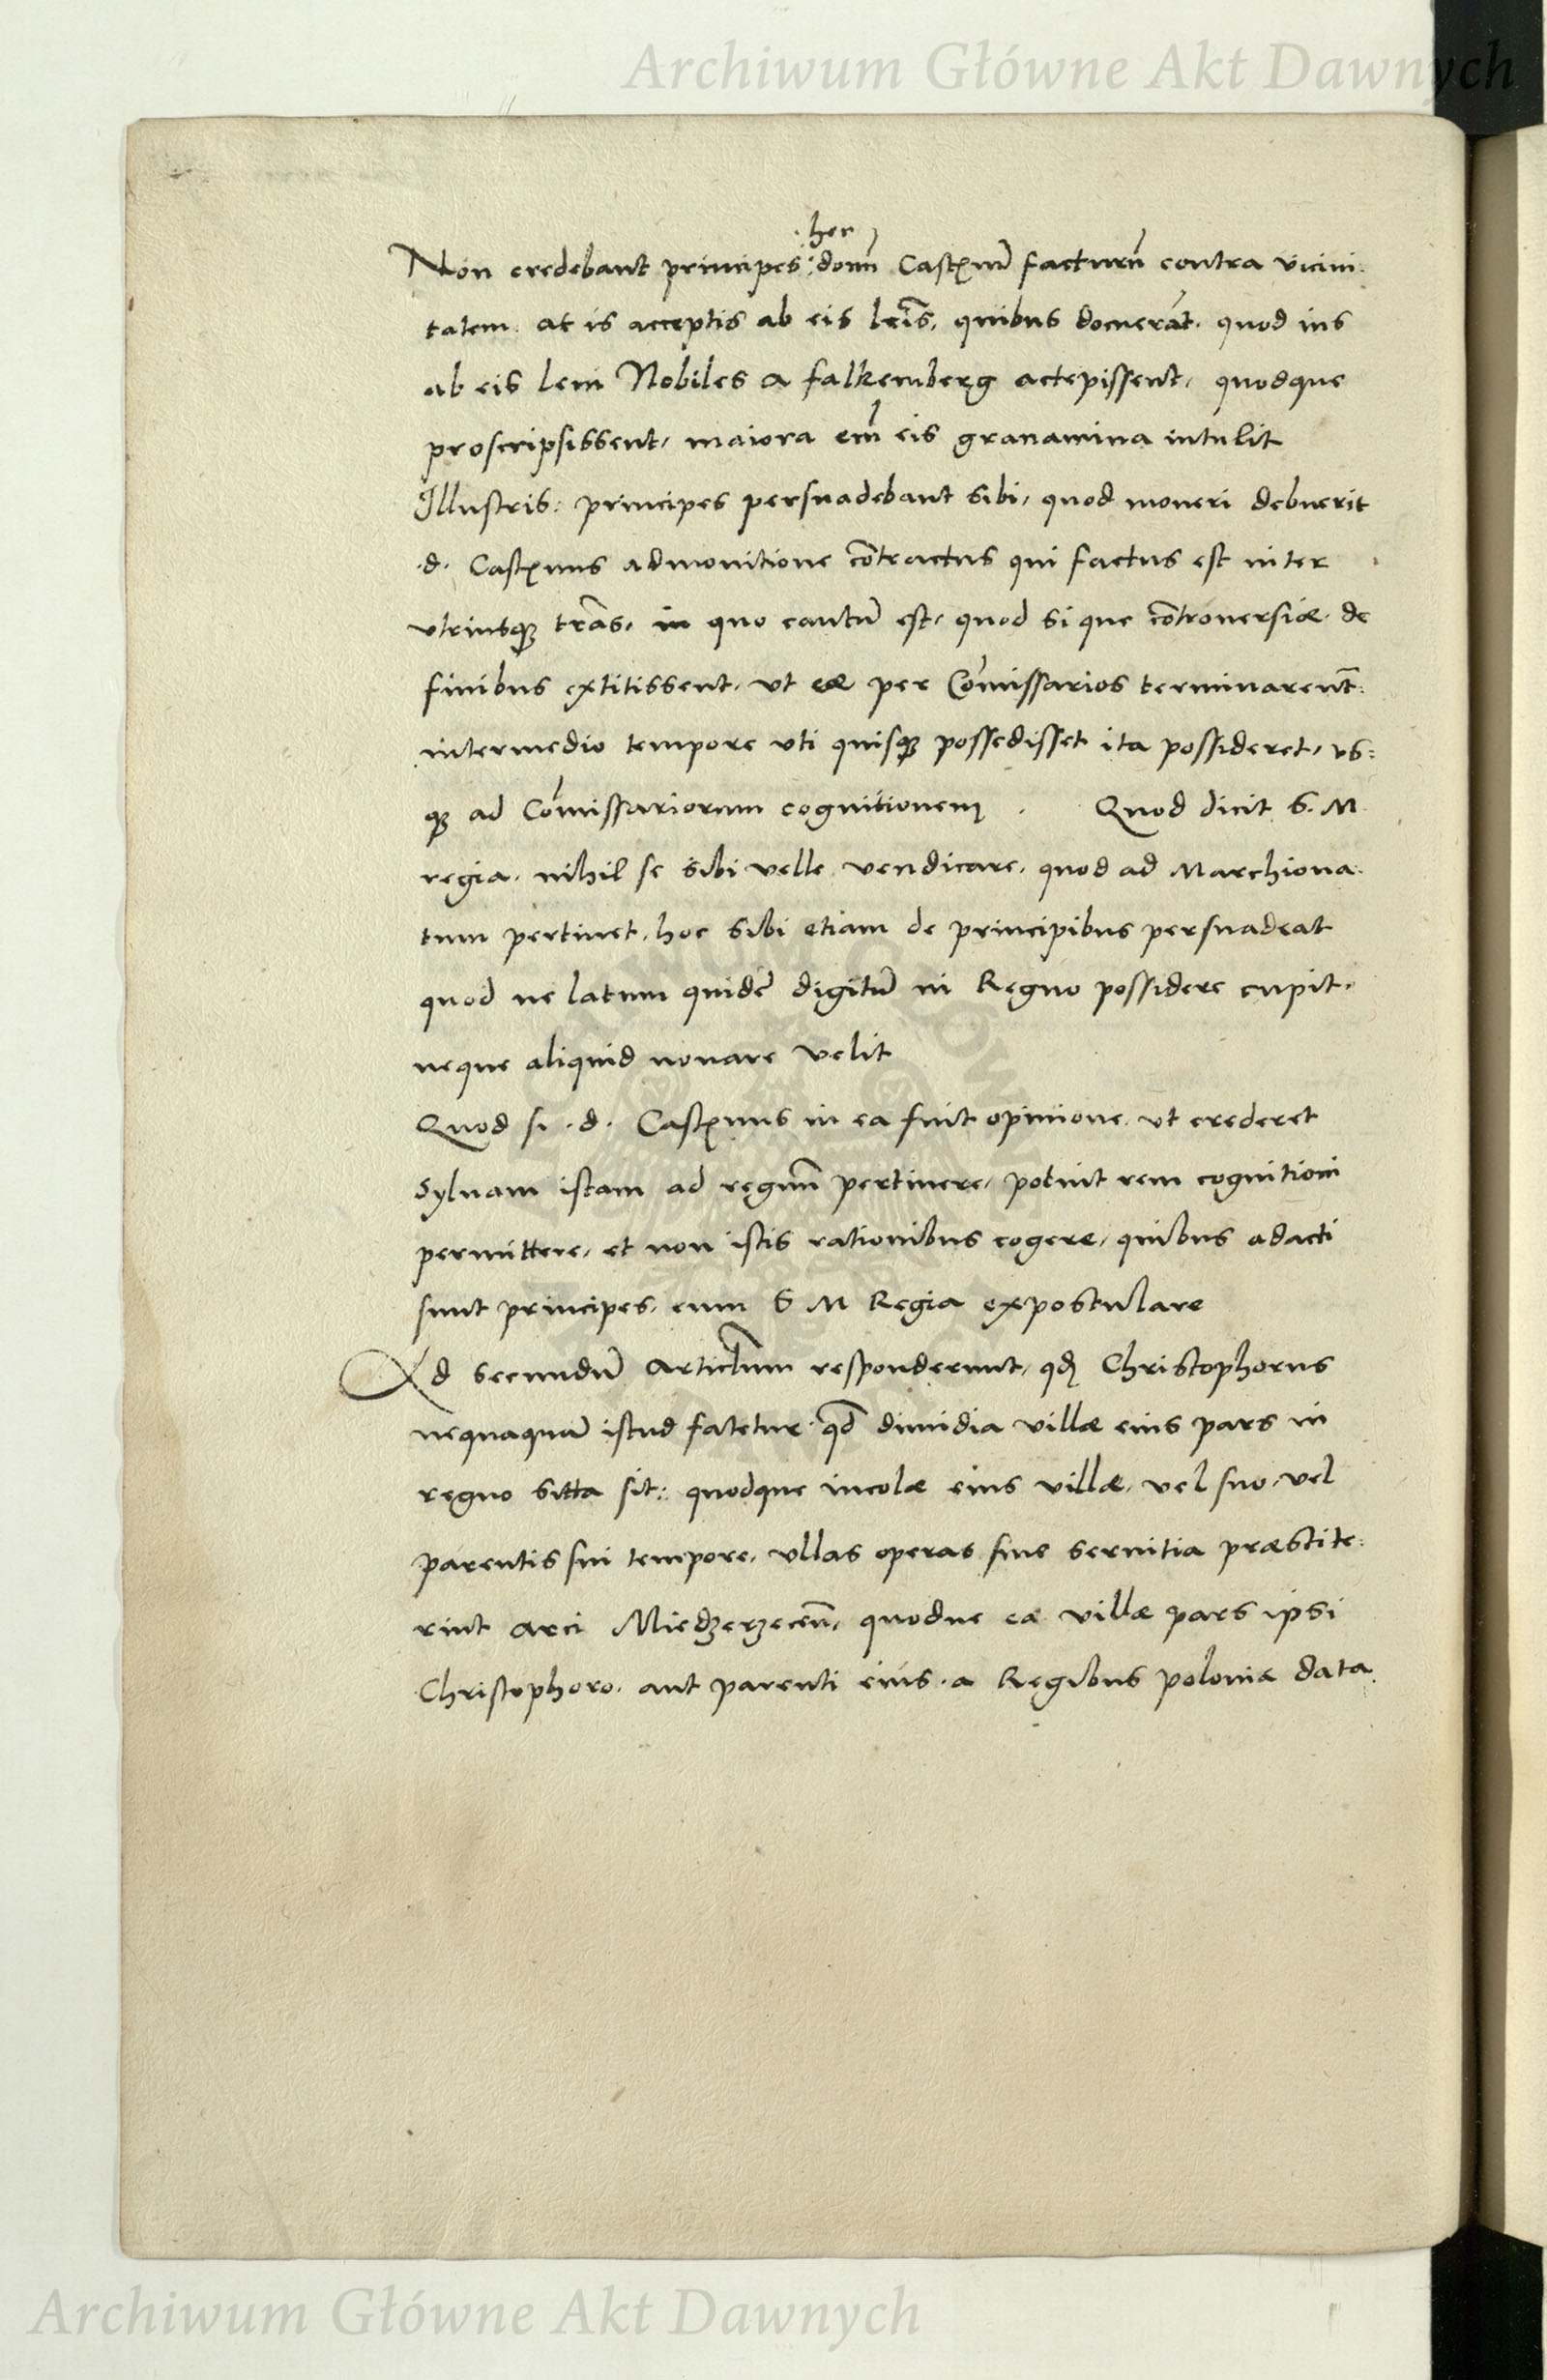 Archiwum Główne Akt Dawnych
hec
Non credebant principes donū Castnū facturū contra vicini
tatem. at is acceptis ab eis lrīs, quibus docuerāt. quod ius
ab eis leni Nobiles a falkemberg accepissent, quodque
proscripsissent, maiora em̄ eis grauamina intulit
Illustris: principes persuadebant sibi, quod moneri debuerit
.d. Castnus admonitione cōtractus qui factus est inter
vtriusq; trās, in quo cautū est, quod si que cōtrouersiæ de
finibus extitissent, vt eæ per Cōmissarios terminarent:
intermedio tempore vti quisq; possedisset ita possideret, vs:
q; ad Cōmissariorum cognitionem . Quod dicit S. M
regia, nihil se sibi velle vendicare, quod ad Marchiona
tum pertinet, hoc sibi etiam de principibus persuadeat
quod ne latum quidē digitū in Regno possidere cupit,
neque aliquid nouare velit
Quod si .d. Castnus in ea fuit opinione, vt crederet
Syluam istam ad regnū pertinere, potuit rem cognitioni
permittere, et non istis rationibus cogere, quibus adacti
sunt principes, cum S M Regia expostulare
Ad secundū Articlum responderunt, qd Christophorus
nequaquā istud fatetur qd dimidia villæ eius pars in
regno sitta sit: quodque incolæ eius villæ, vel suo, vel
parentis sui tempore, vllas operas siue seruitia præstite:
rint arci Miedzerzecen̄, quodue ea villæ pars ipsi
Christophoro, aut parenti eius, a Regibus poloniæ data
Archiwum Główne Akt Dawnych